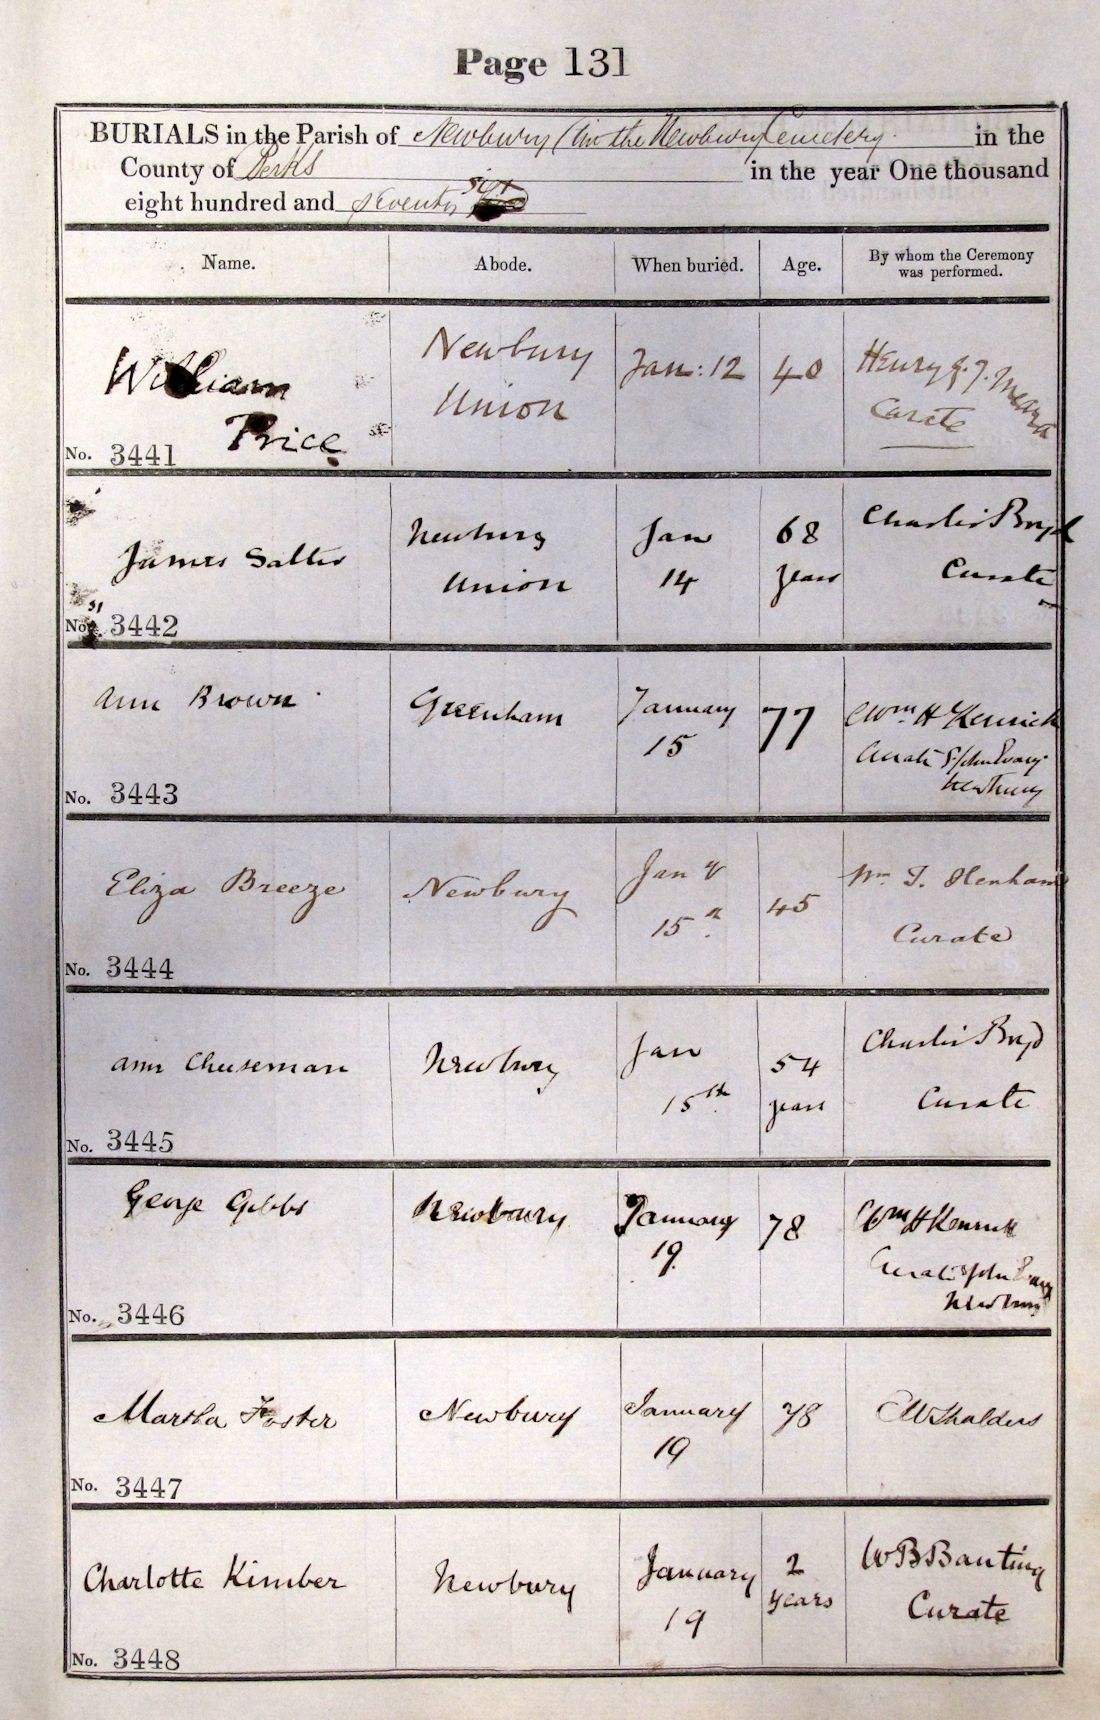 Page 131
BURIALS in the Parish of Newbury (in the Newbury Cemetery in the
County of Berks in the year One thousand
eight hundred and seventy six
Name. Abode. When buried. Age. By whom the Ceremony was performed.
William Price
Newbury Union
Jan: 12
40
Henry
Curate
No. 3441
James Salter
Newbury Union
Jan 14
68 years
Charles Boyd
Curate
No. 3442
Ann Brown
Greenham
January 15
77
Wm H Kenrick
Curate S. John Evang.
Newbury
No. 3443
Eliza Breeze
Newbury
Jan y
15
45
Wm T. Henham
Curate
No. 3444
Ann Cheeseman
Newbury
Jan
15th
54 years
Charles Boyd
Curate
No. 3445
George Gibbs
Newbury
January
19.
78
Wm H Kenrick
Curate S John Evang
Newbury
No. 3446
Martha Foster
Newbury
January
19
78
Shalders
No. 3447
Charlotte Kimber
Newbury
January
19
2 years
W B Banting
Curate
No. 3448